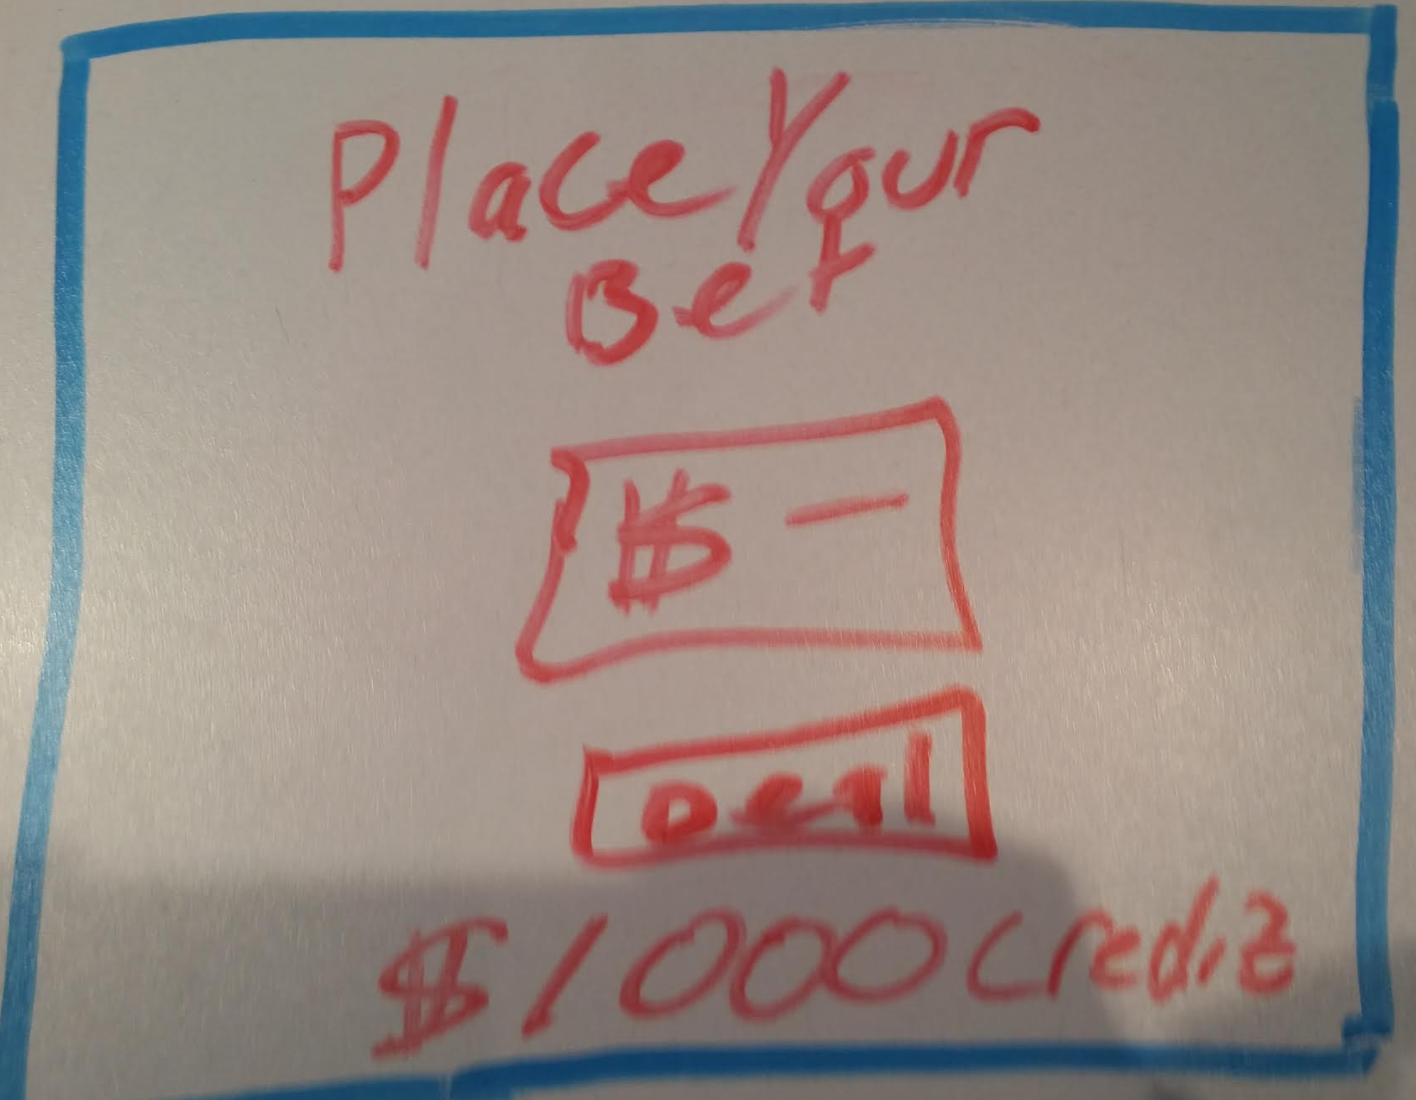 Place Your
Bet
$ —
Deal
$1000 Credit